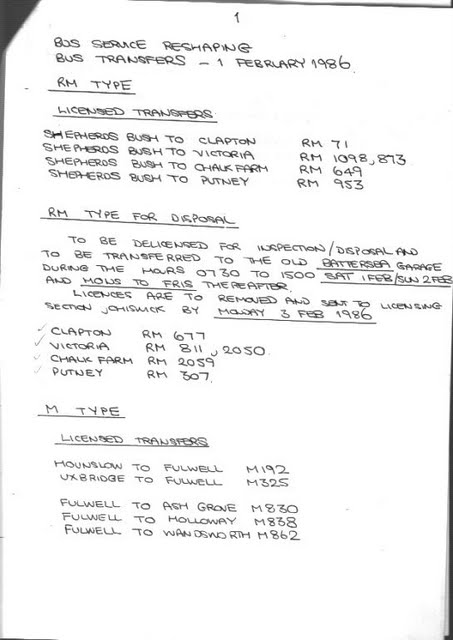 1
BUS SERVICE RESHAPING
BUS TRANSFERS - 1 FEBRUARY 1986.
RM TYPE
LICENSED TRANSFERS
SHEPHERDS BUSH TO CLAPTON RM 71
SHEPHERDS BUSH TO VICTORIA RM 1098, 873
SHEPHERDS BUSH TO CHALK FARM RM 649
SHEPHERDS BUSH TO PUTNEY RM 953
RM TYPE FOR DISPOSAL
TO BE DELICENSED FOR INSPECTION/DISPOSAL AND
TO BE TRANSFERRED TO THE OLD BATTERSEA GARAGE
DURING THE HOURS 0730 TO 1500 SAT 1 FEB/SUN 2 FEB
AND MONS TO FRIS THEREAFTER.
LICENCES ARE TO REMOVED AND SENT TO LICENSING
SECTION, CHISWICK BY MONDAY 3 FEB 1986
✓ CLAPTON RM 677
✓ VICTORIA RM 811, 2050.
✓ CHALK FARM RM 2059
✓ PUTNEY RM 307.
M TYPE
LICENSED TRANSFERS
HOUNSLOW TO FULWELL M192
UXBRIDGE TO FULWELL M325
FULWELL TO ASH GROVE M830
FULWELL TO HOLLOWAY M838
FULWELL TO WANDSWORTH M862